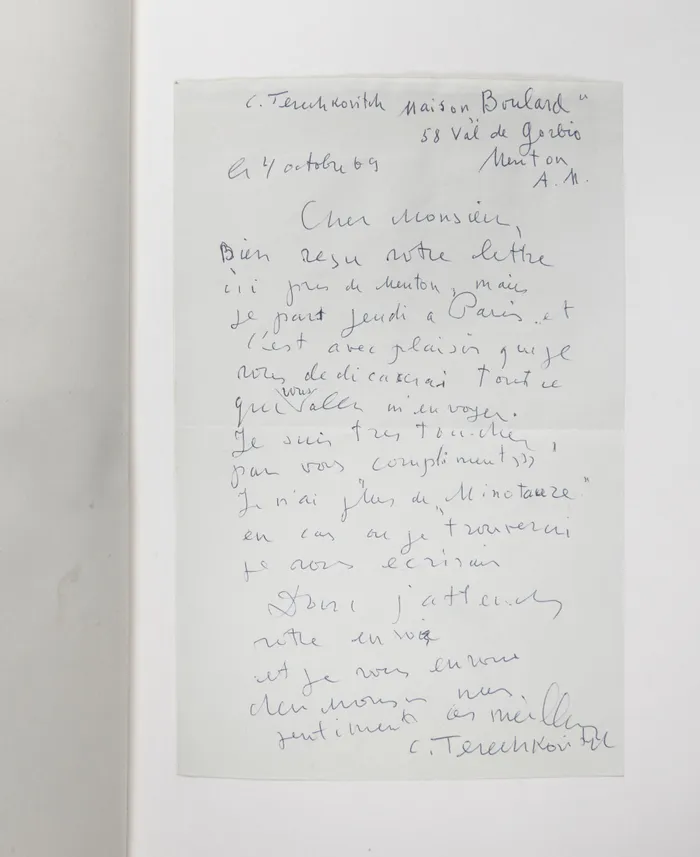 C. Terechkovitch Maison Boulard"
58 Val de Gorbio
Menton
A. M.
le 4 octobre 69
Cher Monsieur,
Bien reçu votre lettre
ici pres de Menton, mais
je part jeudi a Paris et
c'est avec plaisir que je
vous dedicacerai tout ce
que vous vallez m'envoyer.
Je suis tres toucher,
par vos compliments
Je n'ai plus de "Minotaure"
en cas ou je trouverai
je vous ecrirai
Donc j'attends
votre envoie
et je vous envoie
cher Monsieur mes
sentiments les meilleurs
C. Terechkovitch